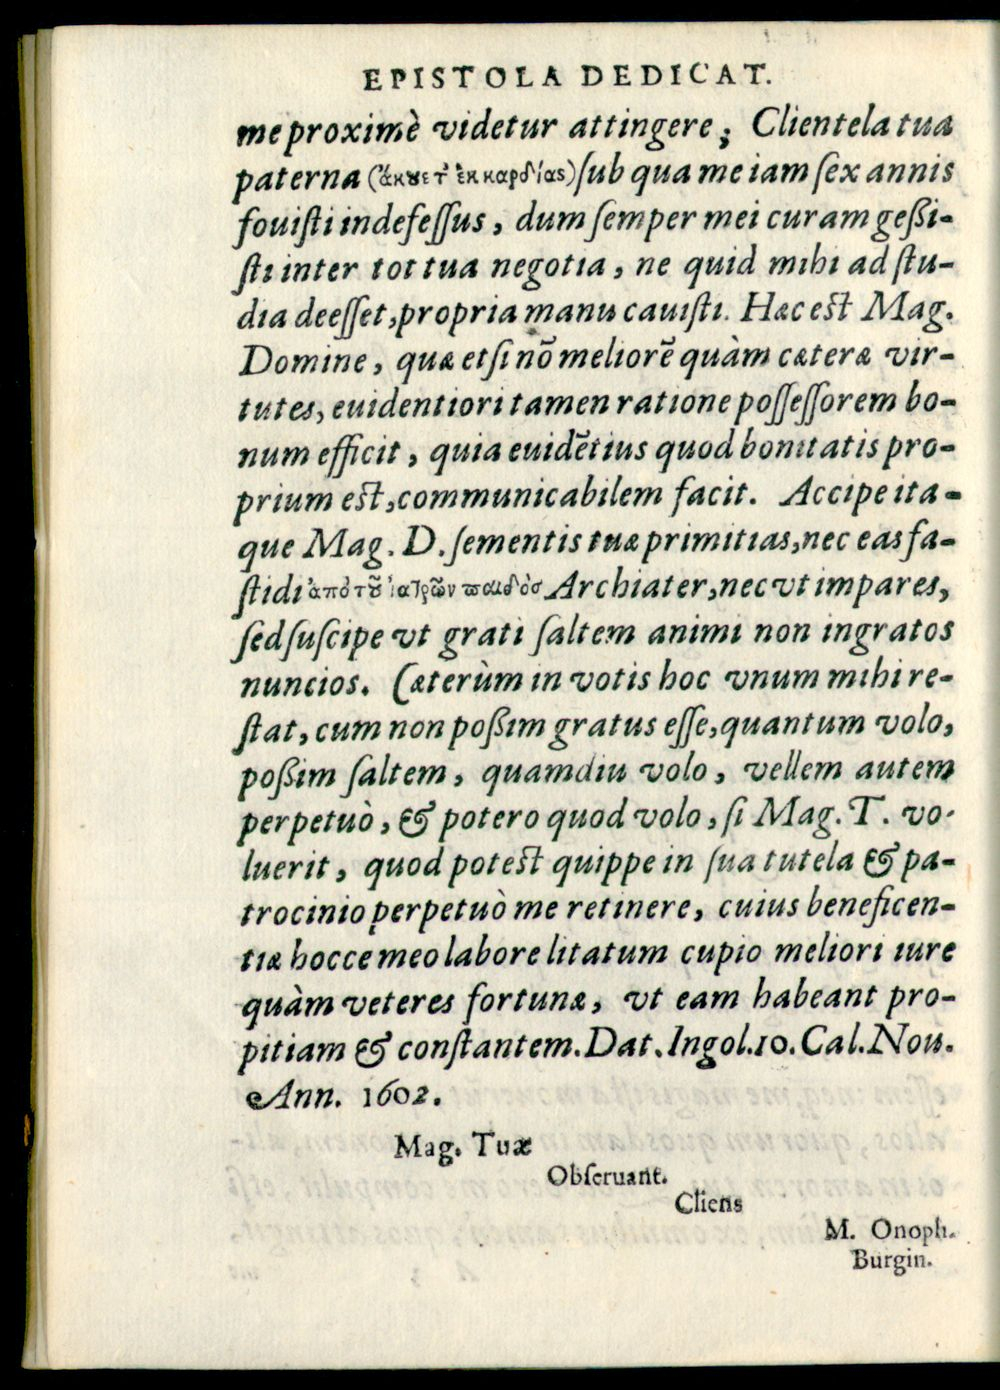 EPISTOLA DEDICAT.
me proximè videtur attingere; Clientela tua
paterna (ἄκȣετ' ἐκ καρδίας) ſub qua me iam ſex annis
fouiſti indefeſſus, dum ſemper mei curam geßi-
ſti inter tot tua negotia, ne quid mihi ad ſtu-
dia deeſſet, propria manu cauiſti. Hæc eſt Mag.
Domine, quæ etſi nō meliorē quàm cæteræ vir-
tutes, euidentiori tamen ratione poſſeſſorem bo-
num efficit, quia euidētius quod bonitatis pro-
prium eſt, communicabilem facit. Accipe ita-
que Mag. D. ſementis tuæ primitias, nec eas fa-
ſtidi ἀπὸ τοῦ ἰατρῶν παιδὸσ Archiater, nec vt impares,
ſed ſuſcipe vt grati ſaltem animi non ingratos
nuncios. Cæterùm in votis hoc vnum mihi re-
ſtat, cum non poßim gratus eſſe, quantum volo,
poßim ſaltem, quamdiu volo, vellem autem
perpetuò, & potero quod volo, ſi Mag. T. vo-
luerit, quod poteſt quippe in ſua tutela & pa-
trocinio perpetuò me retinere, cuius beneficen-
tiæ hocce meo labore litatum cupio meliori iure
quàm veteres fortunæ, vt eam habeant pro-
pitiam & conſtantem. Dat. Ingol. 10. Cal. Nou.
Ann. 1602.
Mag. Tuæ
Obſeruant.
Cliens
M. Onoph.
Burgin.